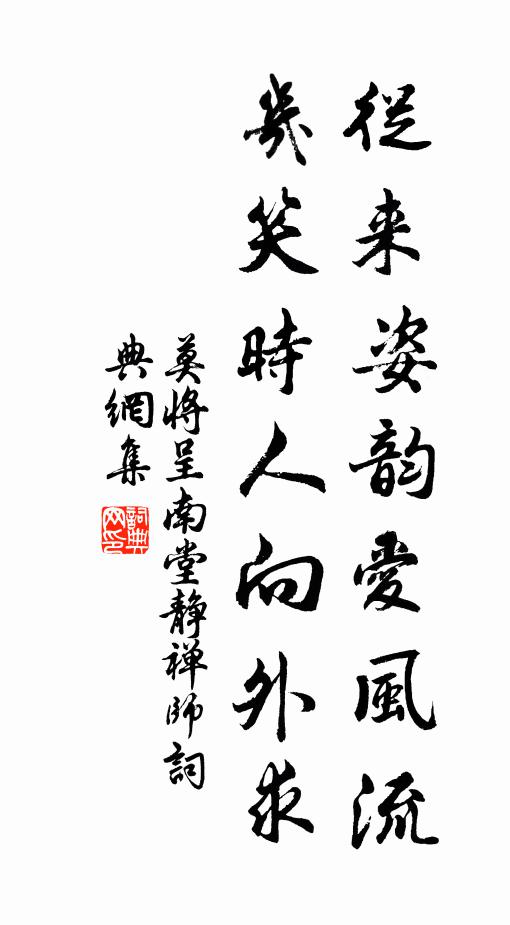 從来姿韵愛風流
幾笑時人向外求
莫將呈南堂静禅師詞
典網集
詞典
网印